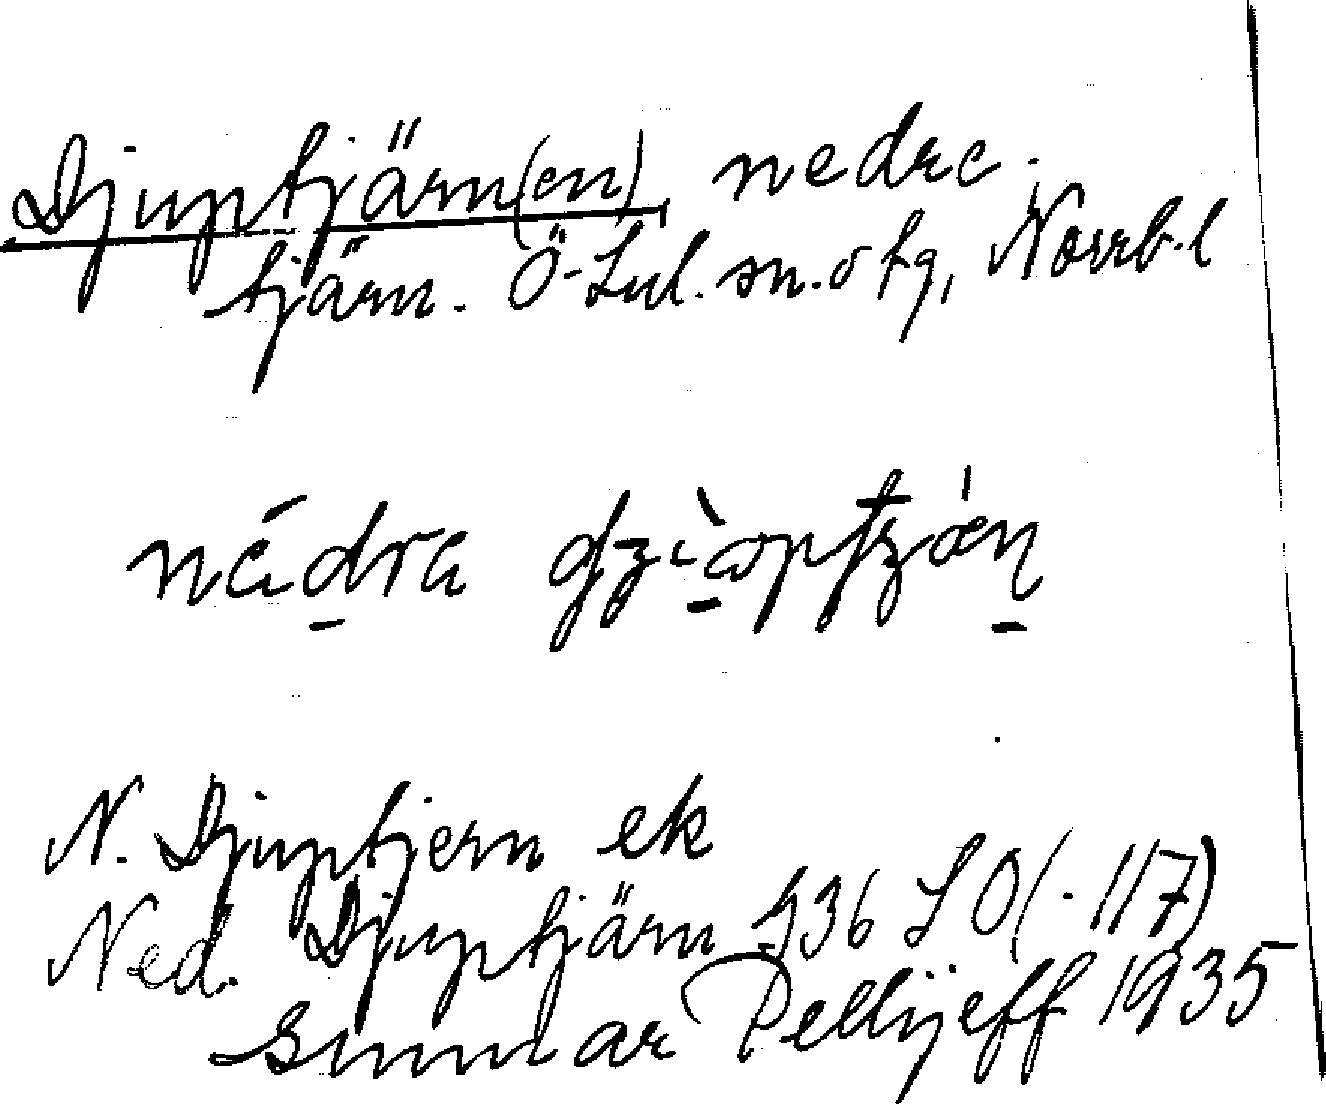 Djuptjärn(en), nedre.
tjärn. Ö-Lul. sn. o tg, Norrb. l
nédra
N. Djuptjern ek
Ned. Djuptjärn J36 SO (. 117)
Gunnar Pellijeff 1935